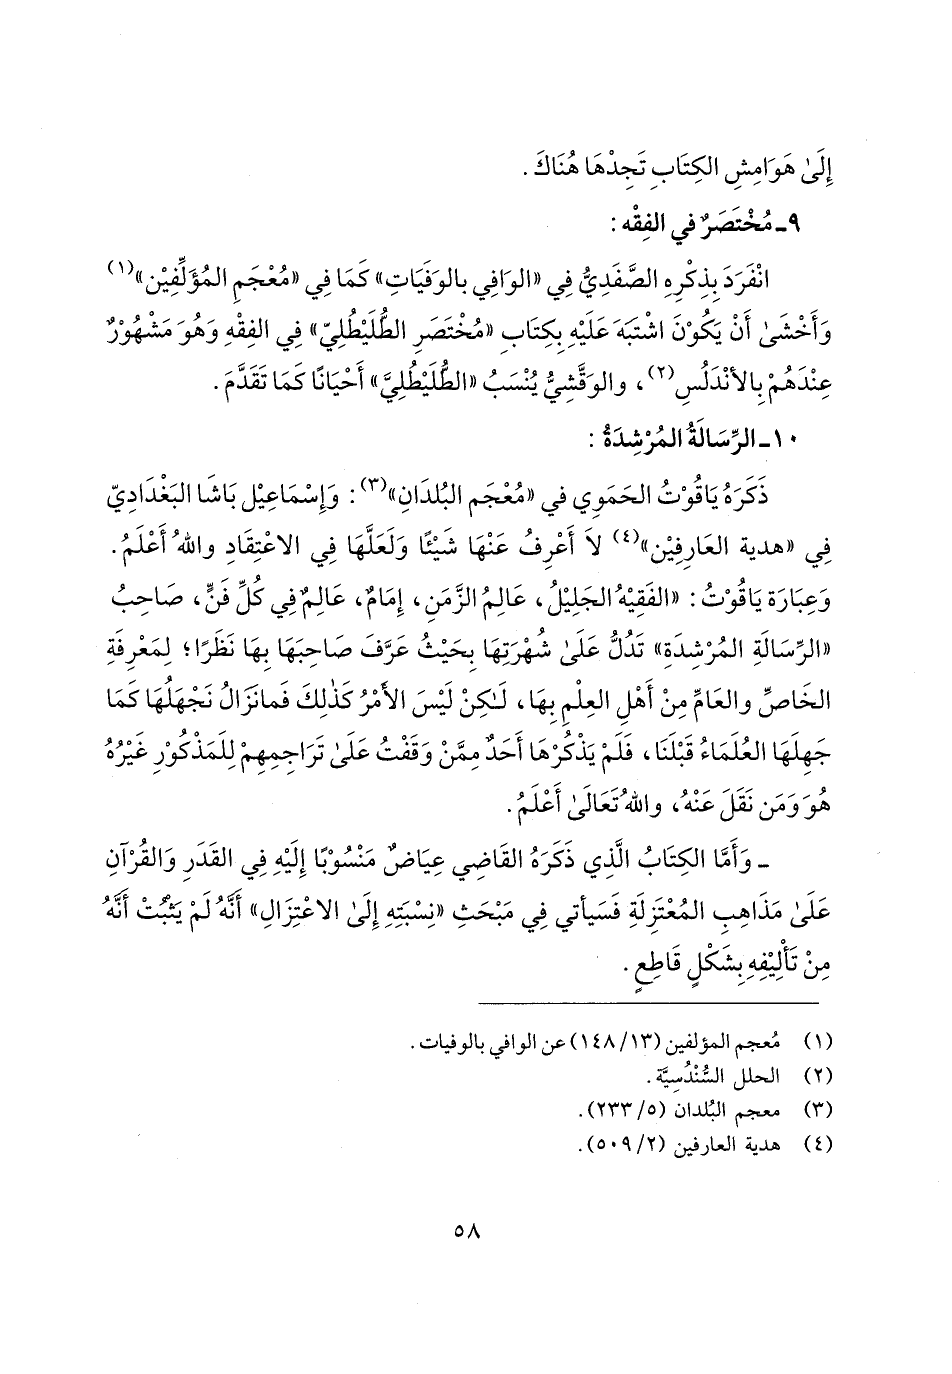 إِلَىٰ هَوَامِشِ الكِتَابِ تَجِدْهَا هُنَاكَ.
٩ـ مُخْتَصَرٌ في الفِقْه :
انْفَرَدَ بِذِكْرِهِ الصَّفَدِيُّ فِي «الوَافِي بالوَفَيَاتِ» كَمَا فِي «مُعْجَمِ المُؤَلِّفِيْن»(١)
وَأَخْشَىٰ أَنْ يَكُوْنَ اشْتَبَهَ عَلَيْهِ بِكِتَابِ «مُخْتَصَرِ الطُّلَيْطُلِيّ» فِي الفِقْهِ وَهُوَ مَشْهُوْرٌ
عِنْدَهُمْ بِالأنْدَلُسِ(٢)، والوَقَّشِيُّ يُنْسَبُ «الطُّلَيْطُلِيَّ» أَحْيَانًا كَمَا تَقَدَّمَ.
١٠ـ الرِّسَالَةُ المُرْشِدَةُ :
ذَكَرَهُ يَاقُوْتُ الحَمَوِي في «مُعْجَمِ البُلدَانِ»(٣): وَإِسْمَاعِيْل بَاشَا البَغْدَادِيّ
فِي «هدية العَارِفِيْن»(٤) لاَ أَعْرِفُ عَنْهَا شَيْئًا وَلَعَلَّهَا فِي الاعْتِقَادِ واللهُ أَعْلَمُ.
وَعِبَارَة يَاقُوْتُ: «الفَقِيْهُ الجَلِيْلُ، عَالِمُ الزَّمَنِ، إِمَامٌ، عَالِمٌ فِي كُلِّ فَنٍّ، صَاحِبُ
«الرِّسَالَةِ المُرْشِدَةِ» تَدُلُّ عَلَىٰ شُهْرَتِهَا بِحَيْثُ عَرَّفَ صَاحِبَهَا بِهَا نَظَرًا؛ لِمَعْرِفَةِ
الخَاصِّ والعَامِّ مِنْ أَهْلِ العِلْمِ بِهَا، لَـٰكِنْ لَيْسَ الأَمْرُ كَذٰلِكَ فَمانَزَالُ نَجْهَلُهَا كَمَا
جَهِلَهَا العُلَمَاءُ قَبْلَنَا، فَلَمْ يَذْكُرْهَا أَحَدٌ مِمَّن وَقَفْتُ عَلَىٰ تَرَاجِمِهِمْ لِلمَذْكُوْرِ غَيْرُهُ
هُوَ وَمَن نَقَلَ عَنْهُ، واللهُ تَعَالَىٰ أَعْلَمُ.
ـ وَأَمَّا الكِتَابُ الَّذِي ذَكَرَهُ القَاضِي عِيَاضٌ مَنْسُوْبًا إِلَيْهِ فِي القَدَرِ وَالقُرْآنِ
عَلَىٰ مَذَاهِبِ المُعْتَزِلَةِ فَسَيأتي فِي مَبْحَثِ «نِسْبَتِهِ إِلَىٰ الاعْتِزَالِ» أَنَّهُ لَمْ يَثْبُتْ أَنَّهُ
مِنْ تَأْلِيْفِهِ بِشَكْلٍ قَاطِعٍ.
(١) مُعجم المؤلفين (١٤٨/١٣) عن الوافي بالوفيات.
(٢) الحلل السُّنْدُسِيَّة.
(٣) معجم البُلدان (٢٣٣/٥).
(٤) هدية العارفين (٥٠٩/٢).
٥٨